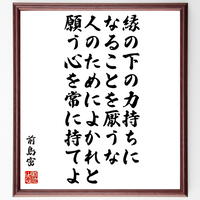 縁の下の力持ちに
なることを厭うな
人のためによかれと
願う心を常に持てよ
前島密